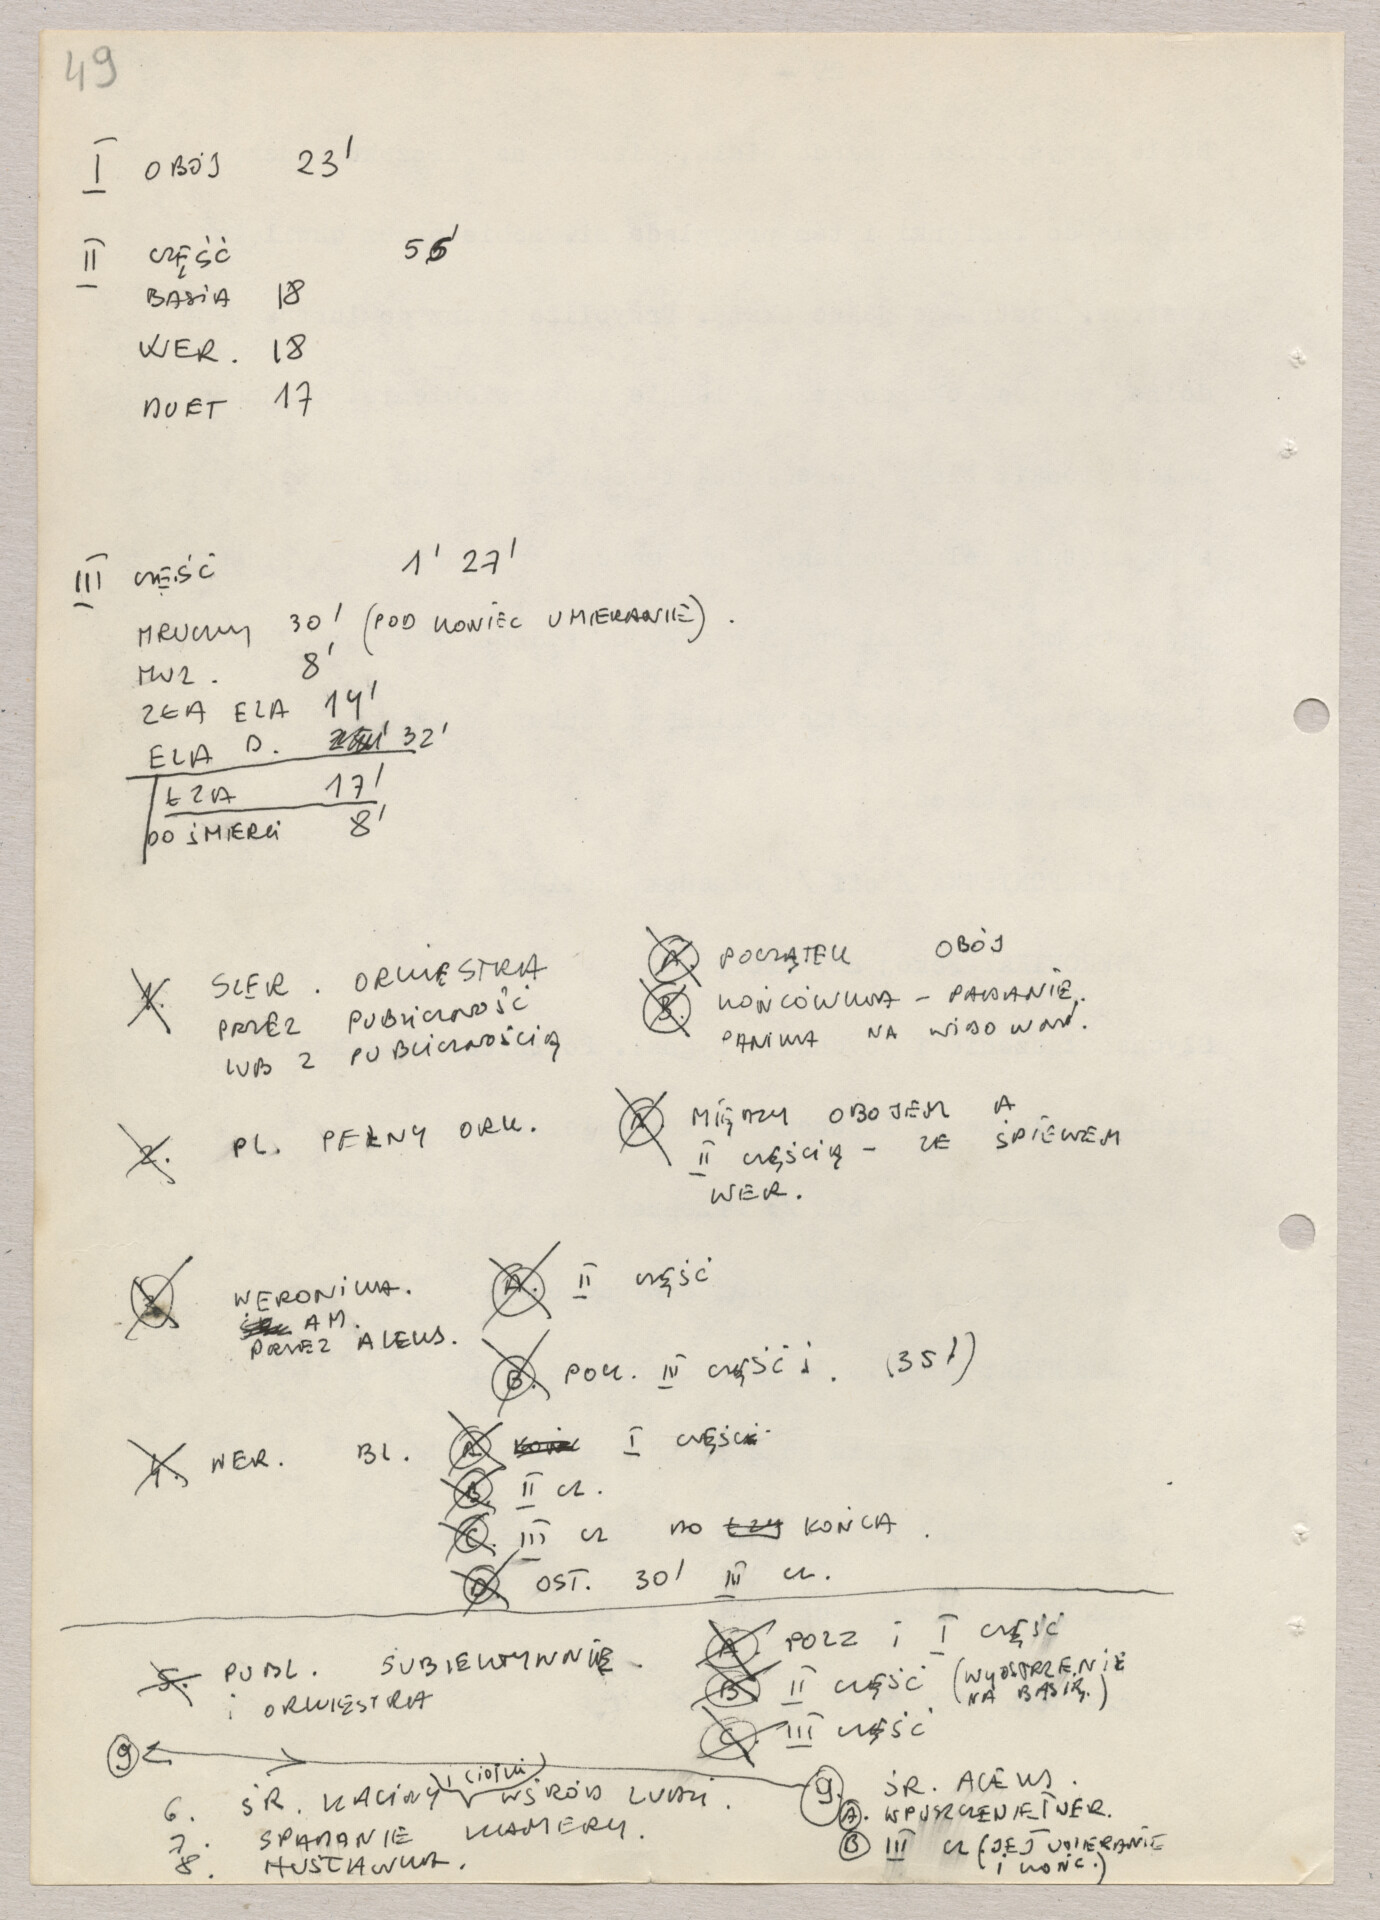 49
I OBÓJ 23'
II CZĘŚĆ 56'
BASIA 18
WER. 18
DUET 17
III CZĘŚĆ 1' 27'
MRUCZY 30' (POD KONIEC UMIERANIE).
MUZ. 8'
ZŁA ELA 14'
ELA D. 32'
ŁZA 17'
DO ŚMIERCI 8'
1. SZER. ORKIESTRA
PRZEZ PUBLICZNOŚĆ
LUB Z PUBLICZNOŚCIĄ
A. POCZĄTEK OBÓJ
B. KOŃCÓWKA – PADANIE,
PANIKA NA WIDOWNI.
2. PL. PEŁNY ORK.
A. MIĘDZY OBOJEM A
II CZĘŚCIĄ – ZE ŚPIEWEM
WER.
3. WERONIKA.
AM.
PRZEZ ALEKS.
A. II CZĘŚĆ
B. POCZ. III CZĘŚCI. (35')
4. WER. BL.
A. I CZĘŚĆ
B. II CZ.
C. III CZ DO ŁZY KOŃCA.
D. OST. 30' III CZ.
5. PUBL. SUBIEKTYWNIE.
i ORKIESTRA
A. POCZ i I CZĘŚĆ
B II CZĘŚĆ (WYOSTRZENIE
NA BASIĘ.)
C. III CZĘŚĆ
9
6. ŚR. KACINY i CIOTKI WŚRÓD LUDZI.
7. SPADANIE KAMERY.
8. HUŚTAWKA.
9. ŚR. ALEKS.
A. WPUSZCZENIE I WER.
B III CZ (JEJ UMIERANIE
i KOŃC.)